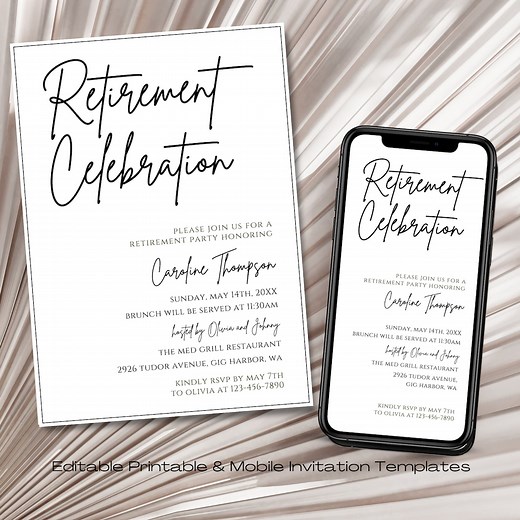 Retirement
Celebration
PLEASE JOIN US FOR A
RETIREMENT PARTY HONORING
Caroline Thompson
SUNDAY, MAY 14TH, 20XX
BRUNCH WILL BE SERVED AT 11:30AM
hosted by Olivia and Johnny
THE MED GRILL RESTAURANT
2926 TUDOR AVENUE, GIG HARBOR, WA
KINDLY RSVP BY MAY 7TH
TO OLIVIA AT 123-456-7890
Retirement
Celebration
PLEASE JOIN US FOR A
RETIREMENT PARTY HONORING
Caroline Thompson
SUNDAY, MAY 14TH, 20XX
BRUNCH WILL BE SERVED AT 11:30AM
hosted by Olivia and Johnny
THE MED GRILL RESTAURANT
2926 TUDOR AVENUE,
GIG HARBOR, WA
KINDLY RSVP BY MAY 7TH
TO OLIVIA AT 123-456-7890
Editable Printable & Mobile Invitation Templates